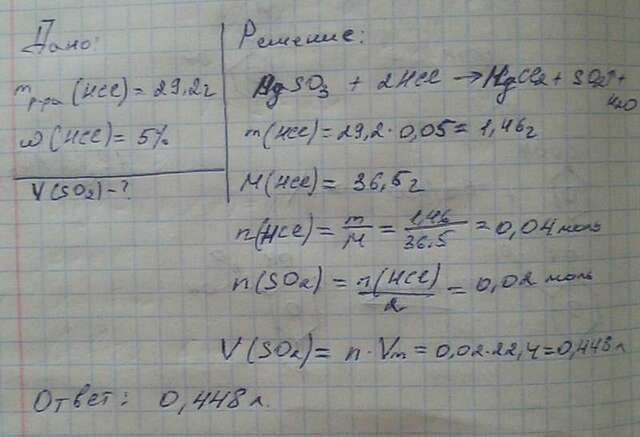 Дано:
m р-ра (HCl) = 29,2г
ω (HCl) = 5%
V (SO2) - ?
Решение:
MgSO3 + 2HCl → MgCl2 + SO2↑ + H2O
m (HCl) = 29,2 · 0,05 = 1,46г
M (HCl) = 36,5г
n (HCl) = m/M = 1,46/36.5 = 0,04 моль
n (SO2) = n(HCl)/2 = 0,02 моль
V (SO2) = n · Vm = 0,02·22,4 = 0,448л
Ответ: 0,448 л.